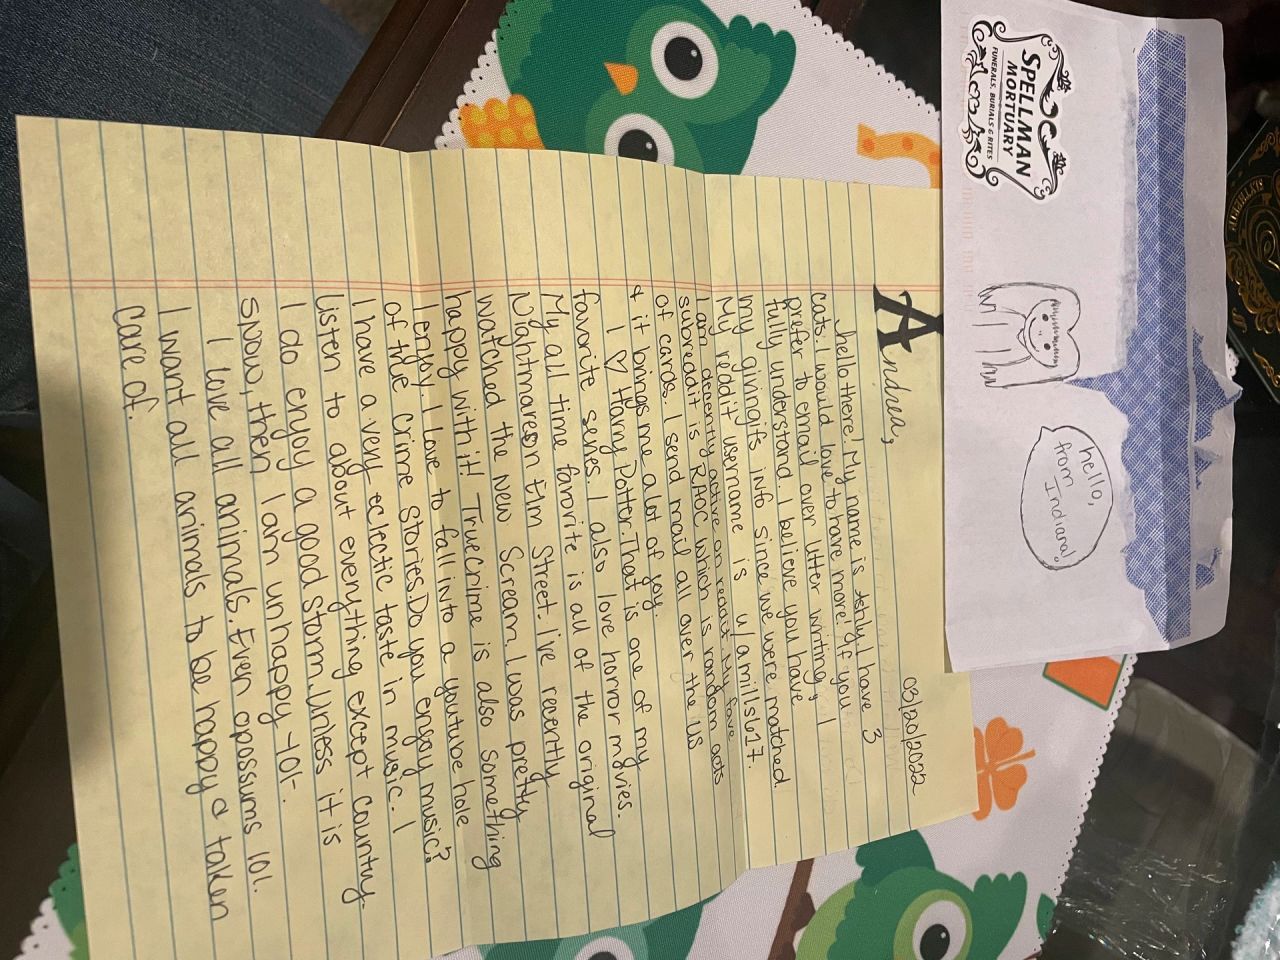 SPELLMAN
MORTUARY
FUNERALS, BURIALS & RITES
hello,
from
Indiana!
03/20/2022
Andrea,
hello there! My name is Ashly. I have 3
cats. I would love to have more! If you
prefer to email over letter writing, I
fully understand. I believe you have
my givingifs info since we were matched.
My reddit username is u/amills617.
I am decently active on reddit. My fave
subreddit is RAOC which is random acts
of cards. I send mail all over the US
& it brings me a lot of joy.
♡ Harry Potter. That is one of my
favorite series. I also love horror movies.
My all time favorite is all of the original
Nightmares on Elm Street. I've recently
watched the new Scream. I was pretty
happy with it! True crime is also something
I enjoy. I love to fall into a youtube hole
of true crime stories. Do you enjoy music?
I have a very eclectic taste in music. I
listen to about everything except country.
I do enjoy a good storm. Unless it is
snow, then I am unhappy lol.
I love all animals. Even opossums lol.
I want all animals to be happy & taken
care of.